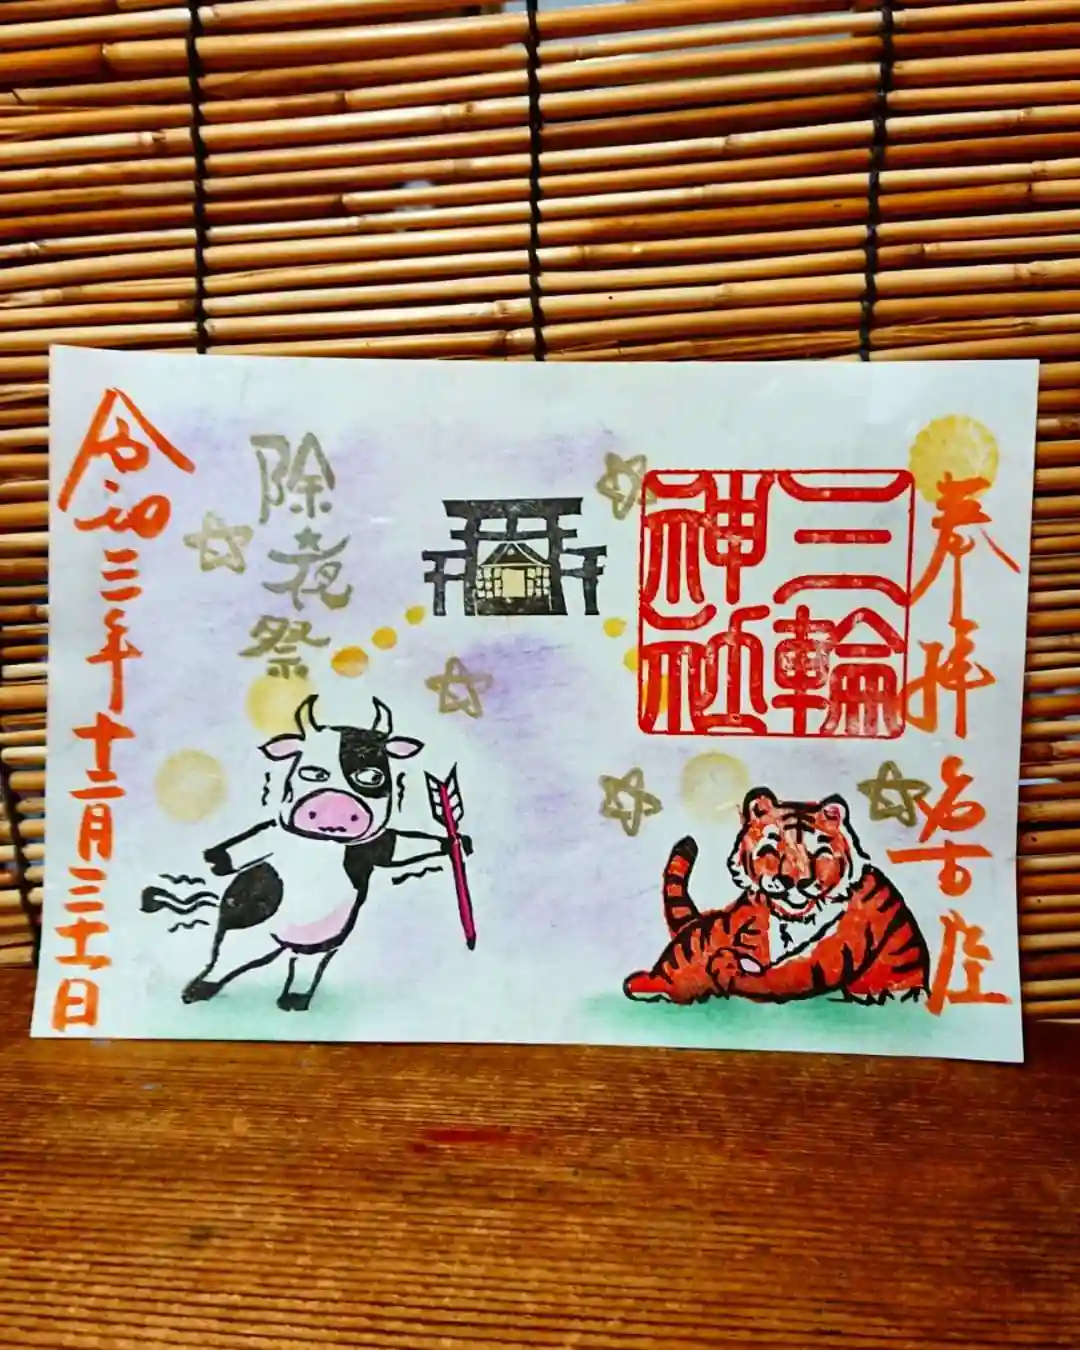 奉拝 名古屋
三輪
神社
除夜
祭
令和三年十二月三十一日